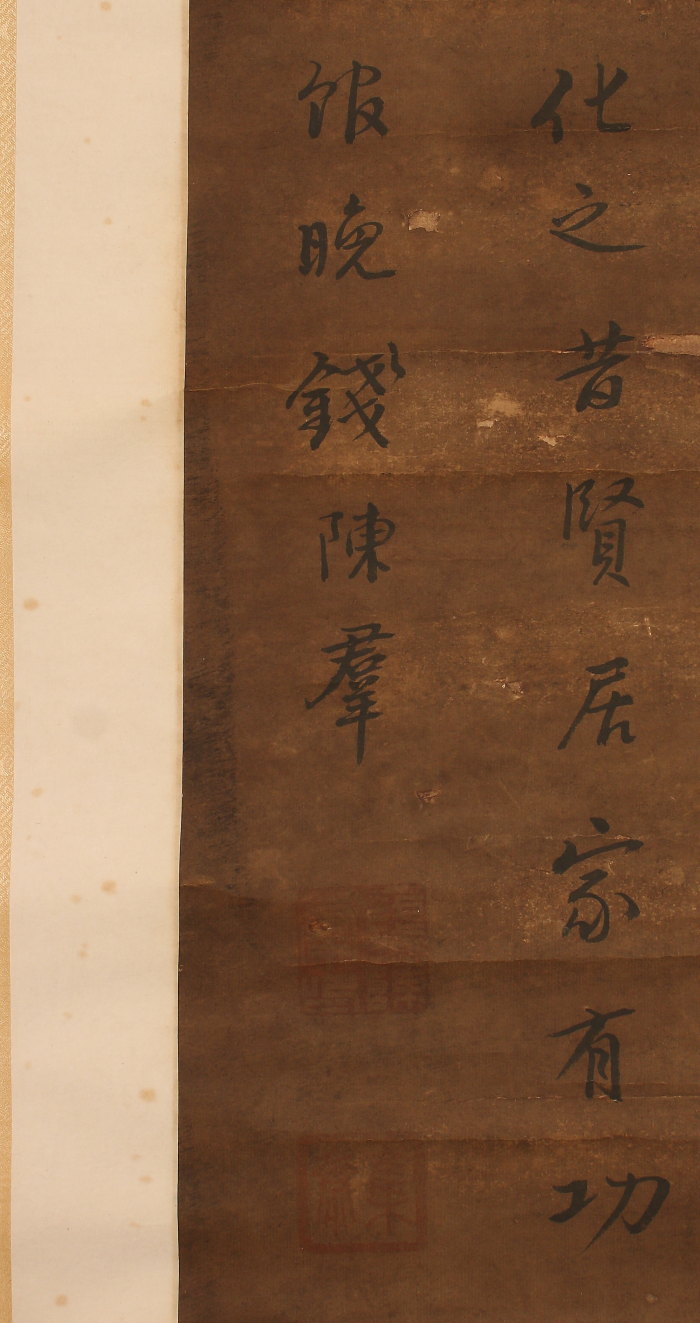 化之昔賢居家有功
館晚錢陳羣